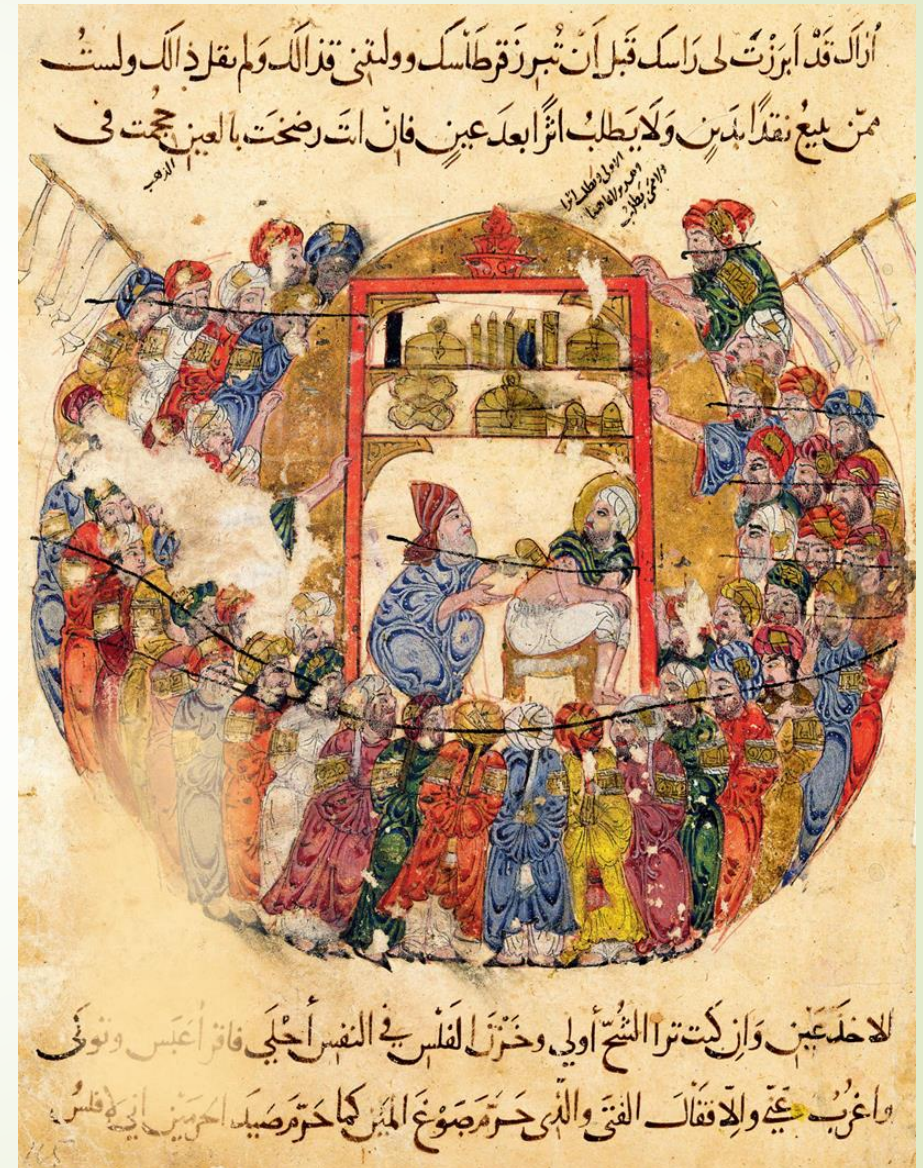 أراك قد أبرزت لي راسك قبل أن تبرز قرطاسك ووليتني قذالك ولم تقل ذالك ولست
ممن يبيع نقدا بدين ولا يطلب اثرا بعد عين فان انت رضخت بالعين حجمت في
الاخدعين وان كنت ترا الشح أولى وخزن الفلس في النفس أحلى فاقرأ عبس وتولى
واغرب عني والا فقال الفتى والذي حرم صوغ المين كما حرم صيد الحرمين اني لافلس